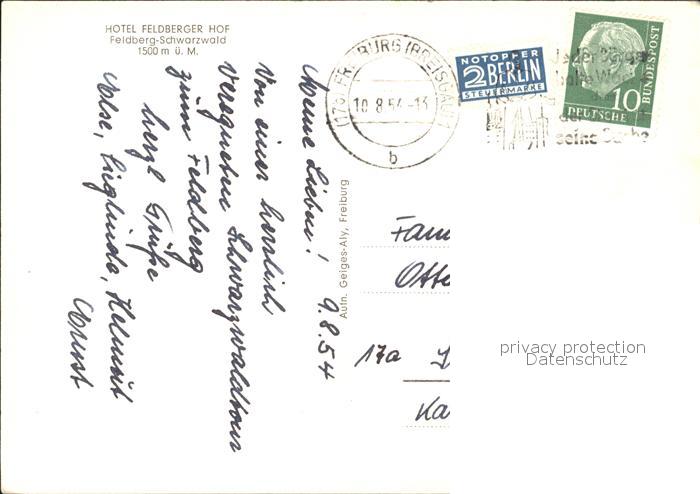 HOTEL FELDBERGER HOF
Feldberg-Schwarzwald
1500 m ü. M.
Meine Lieben! 9.8.54
Von einer herrlich
verregneten Schwarzwaldtour
zum Feldberg
herzl Grüße
Ilse, Sieglinde, Helmut
Aufn. Geiges-Aly, Freiburg
(17b) FREIBURG (BREISGAU)
10.8.54-13
b
NOTOPFER
2 BERLIN
STEUERMARKE
Jeder
seine Sache
DEUTSCHE
BUNDESPOST
10
Fam
Otte
17a
Ka
privacy protection
Datenschutz